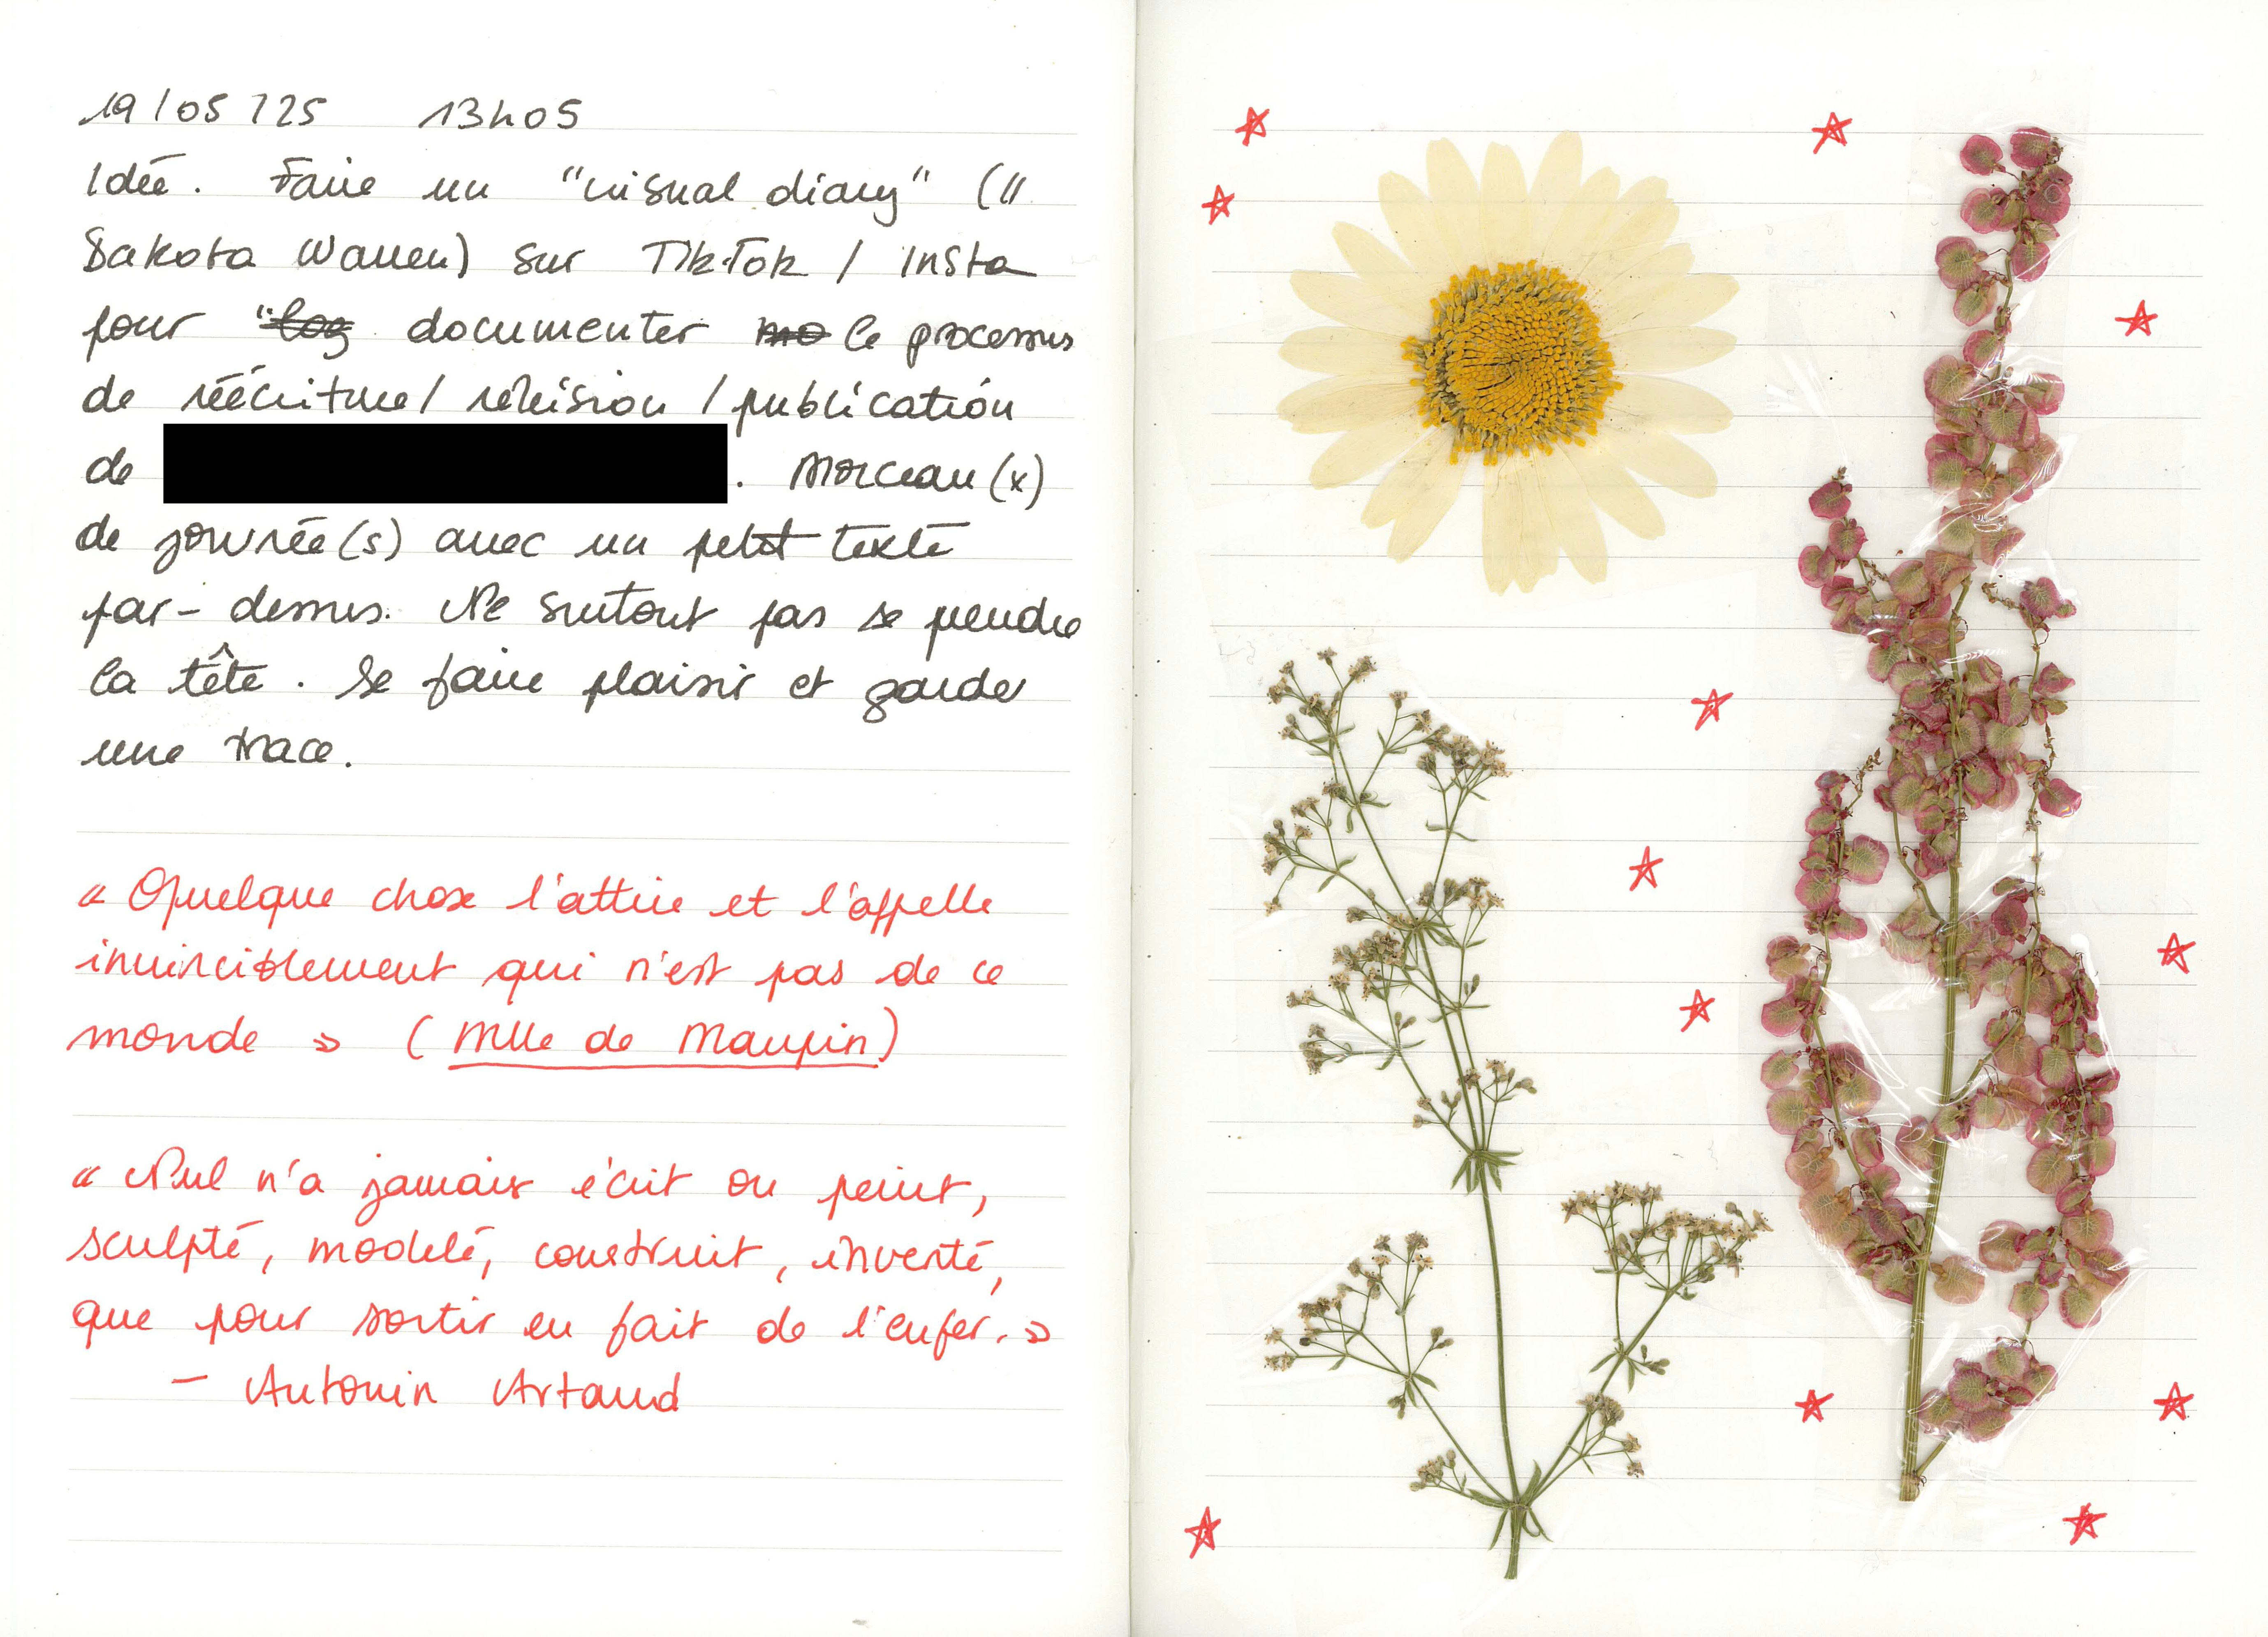 19/05/25 13h05
Idée. Faire un "visual diary" (//
Dakota Warren) sur TikTok / Insta
pour "log documenter mo le processus
de réécriture / révision / publication
de . Morceau(x)
de journée(s) avec un petit texte
par-dessus. Ne surtout pas se prendre
la tête. Se faire plaisir et garder
une trace.
« Quelque chose l'attire et l'appelle
invinciblement qui n'est pas de ce
monde » (Mlle de Maupin)
« Nul n'a jamais écrit ou peint,
sculpté, modelé, construit, inventé,
que pour sortir en fait de l'enfer. »
– Antonin Artaud